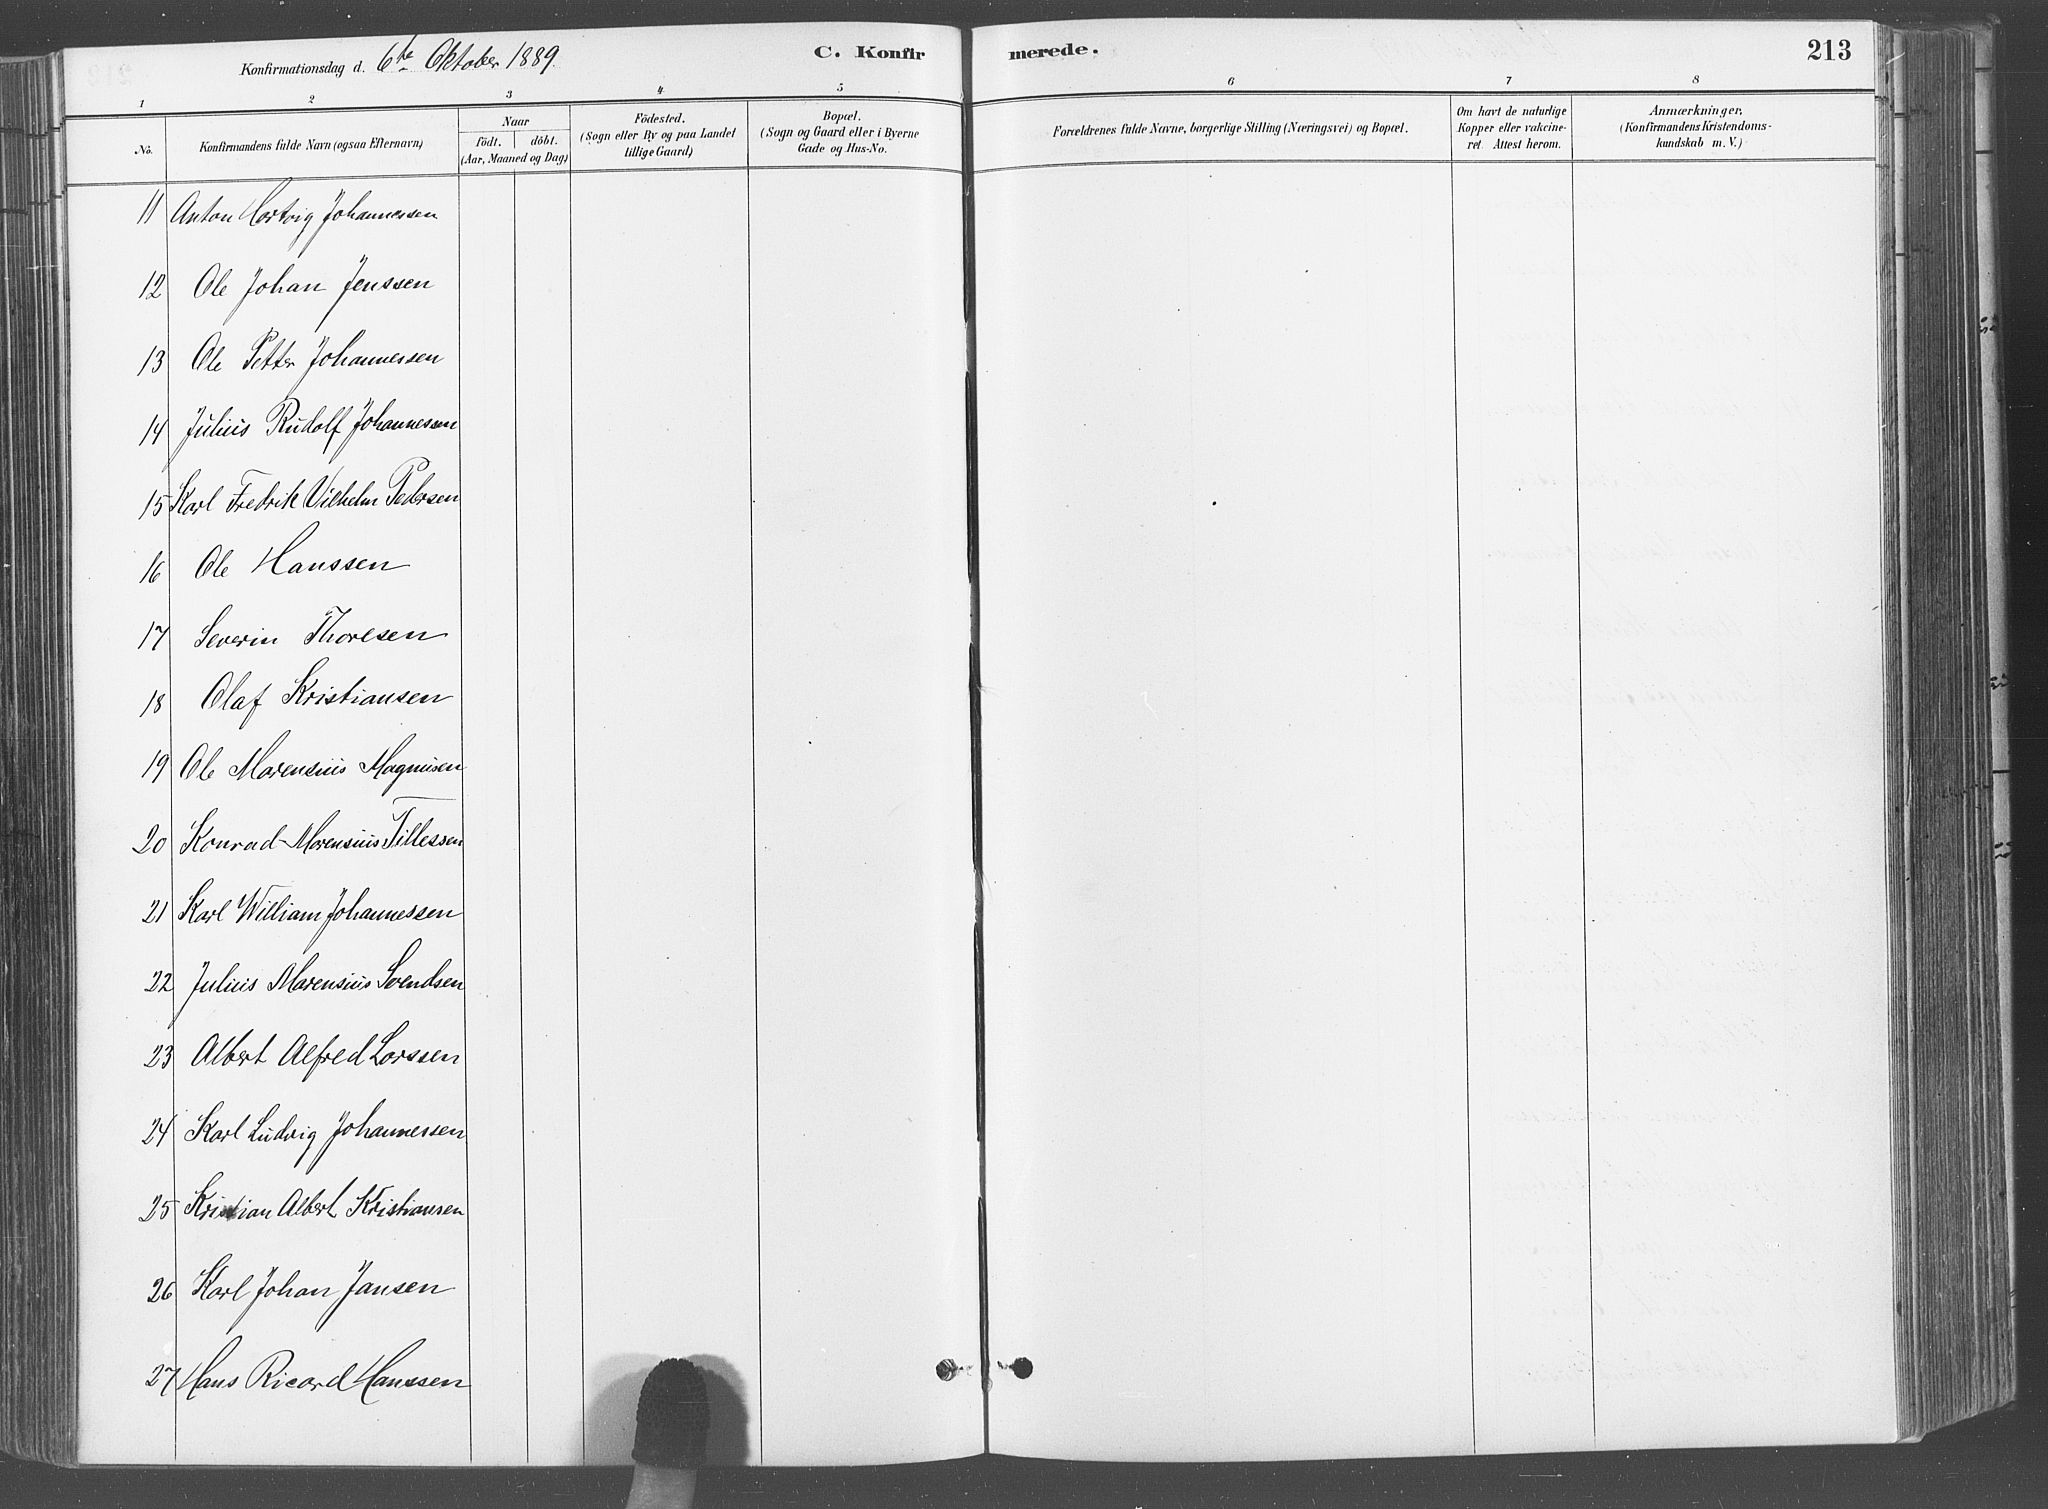 Konfirmationsdag d. 6te Oktober 1889.
C. Konfirmerede.
213
1 2 3 4 5 6 7 8
No.
Konfirmandens fulde Navn (ogsaa Efternavn)
Naar
födt. döbt.
(Aar, Maaned og Dag)
Födested.
(Sogn eller By og paa Landet
tillige Gaard)
Bopæl.
(Sogn og Gaard eller i Byerne
Gade og Hus-No.
Forældrenes fulde Navne, borgerlige Stilling (Næringsvei) og Bopæl.
Om havt de naturlige
Kopper eller vakcine-
ret. Attest herom.
Anmærkninger,
(Konfirmandens Kristendoms-
kundskab m. V.)
11 Anton Hartvig Johannessen
12 Ole Johan Jenssen
13 Ole Petter Johannessen
14 Julius Rudolf Johannessen
15 Karl Fredrik Vilhelm Pedersen
16 Ole Hanssen
17 Severin Thoresen
18 Olaf Kristiansen
19 Ole Marensius Magnusen
20 Konrad Marensius Tillessen
21 Karl William Johannessen
22 Julius Marensius Svendsen
23 Albert Alfred Larssen
24 Karl Ludvig Johannessen
25 Kristian Albert Kristiansen
26 Karl Johan Jansen
27 Hans Ricard Hanssen